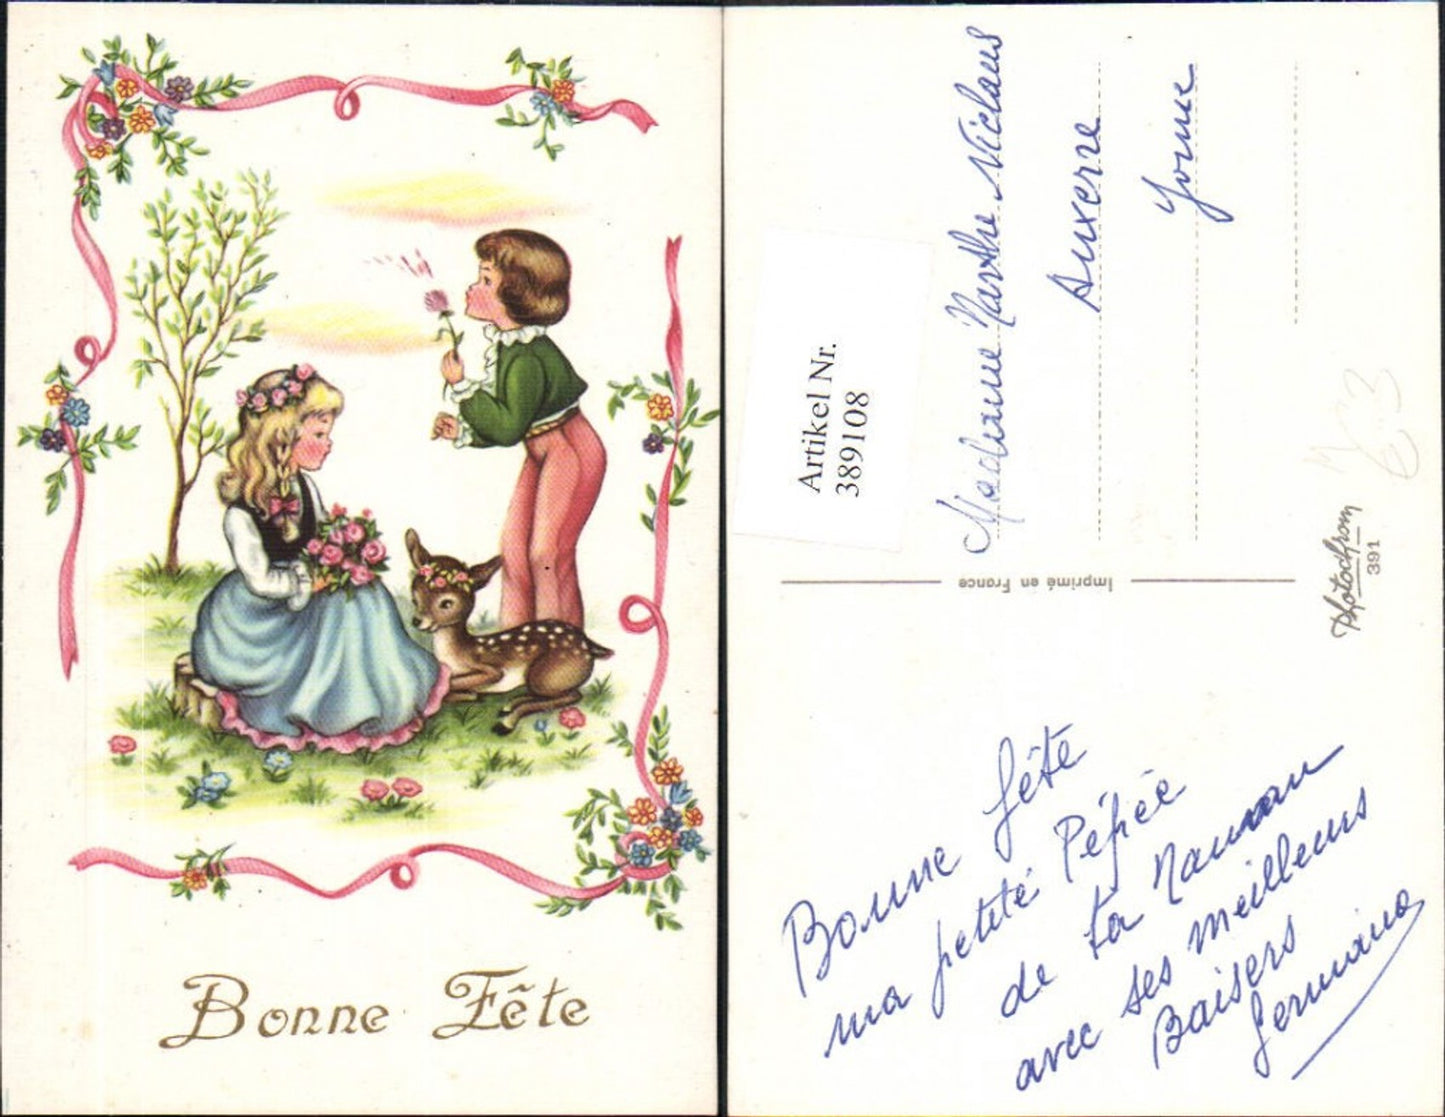 Bonne Fête
Madame Marthe Niclaus
Auxerre
Yonne
Artikel Nr.
389108
Imprimé en France
Photochrom
391
Bonne fête
ma petite Pépée
de ta Maman
avec ses meilleurs
Baisers
Germaine